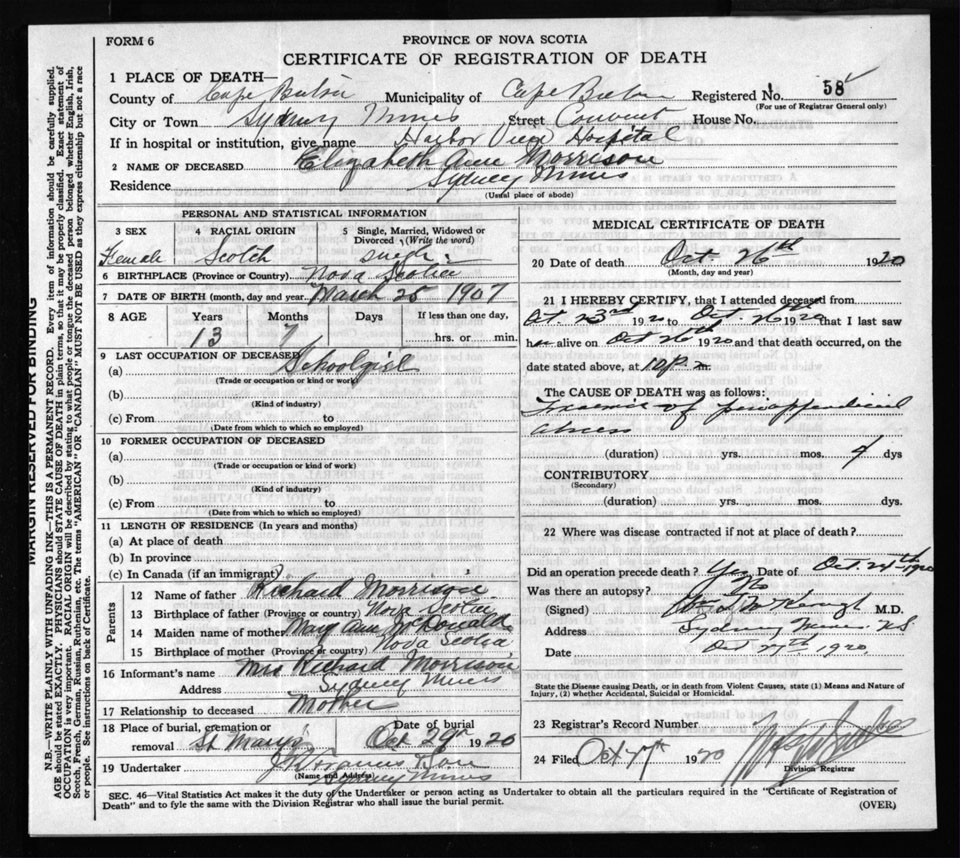 FORM 6
PROVINCE OF NOVA SCOTIA
CERTIFICATE OF REGISTRATION OF DEATH
1 PLACE OF DEATH—
County of Cape Breton Municipality of Cape Breton Registered No. 58
(For use of Registrar General only)
City or Town Sydney Mines Street Convent House No.
If in hospital or institution, give name Harbor View Hospital
2 NAME OF DECEASED Elizabeth Ann Morrison
Residence Sydney Mines
(Usual place of abode)
PERSONAL AND STATISTICAL INFORMATION
3 SEX
Female
4 RACIAL ORIGIN
Scotch
5 Single, Married, Widowed or Divorced (Write the word)
single
6 BIRTHPLACE (Province or Country) Nova Scotia
7 DATE OF BIRTH (month, day and year) March 25 1907
8 AGE Years Months Days If less than one day,
13 7 hrs. or min.
9 LAST OCCUPATION OF DECEASED
(a) Schoolgirl
(Trade or occupation or kind or work)
(b)
(Kind of industry)
(c) From to
(Date from which to which so employed)
10 FORMER OCCUPATION OF DECEASED
(a)
(Trade or occupation or kind of work)
(b)
(Kind of industry)
(c) From to
(Date from which to which so employed)
11 LENGTH OF RESIDENCE (In years and months)
(a) At place of death
(b) In province
(c) In Canada (if an immigrant)
Parents
12 Name of father Richard Morrison
13 Birthplace of father (Province or country) Nova Scotia
14 Maiden name of mother Mary Ann McDonald
15 Birthplace of mother (Province or country) Nova Scotia
16 Informant's name Mrs Richard Morrison
Address Sydney Mines
17 Relationship to deceased Mother
18 Place of burial, cremation or removal St Marys Date of burial Oct 29th 1920
19 Undertaker
(Name and Address) Sydney Mines
MEDICAL CERTIFICATE OF DEATH
20 Date of death Oct. 26th 1920
(Month, day and year)
21 I HEREBY CERTIFY, that I attended deceased from
Oct 23rd 1920 to Oct. 26th 1920 that I last saw
h alive on Oct 26th 1920 and that death occurred, on the
date stated above, at m.
The CAUSE OF DEATH was as follows:
of
(duration) yrs. mos. 4 dys
CONTRIBUTORY
(Secondary)
(duration) yrs. mos. dys.
22 Where was disease contracted if not at place of death?
Did an operation precede death? Yes Date of Oct. 24th 1920
Was there an autopsy? No
(Signed) M.D.
Address Sydney Mines NS
Date Oct 27th 1920
State the Disease causing Death, or in death from Violent Causes, state (1) Means and Nature of
Injury, (2) whether Accidental, Suicidal or Homicidal.
23 Registrar's Record Number
24 Filed Oct 1920
Division Registrar
SEC. 46—Vital Statistics Act makes it the duty of the Undertaker or person acting as Undertaker to obtain all the particulars required in the "Certificate of Registration of
Death" and to fyle the same with the Division Registrar who shall issue the burial permit.
(OVER)
MARGIN RESERVED FOR BINDING
N.B.—WRITE PLAINLY WITH UNFADING INK—THIS IS A PERMANENT RECORD. Every item of information should be carefully supplied.
AGE should be stated EXACTLY. PHYSICIANS should STATE CAUSE OF DEATH in plain terms, so that it may be properly classified. Exact statement of
OCCUPATION is very important. RACIAL ORIGIN will be described by stating to what people or tongue the deceased person belonged whether English, Irish,
Scotch, French, German, Russian, Ruthenian, etc. The terms "AMERICAN" OR "CANADIAN" MUST NOT BE USED as they express citizenship but not a race
or people. See instructions on back of Certificate.